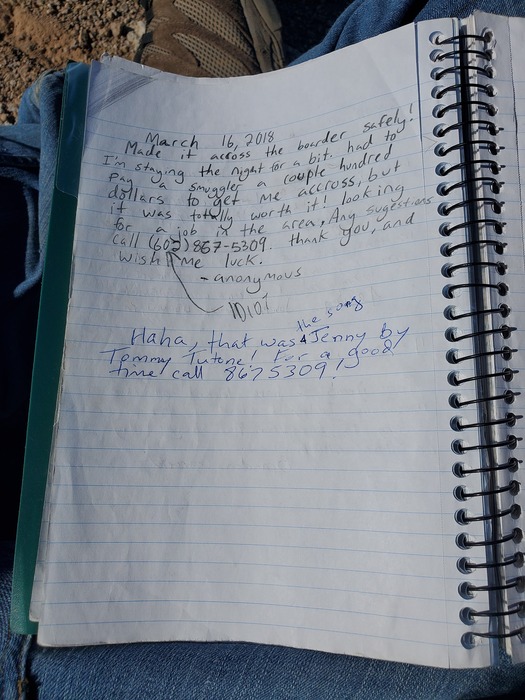 March 16, 2018
Made it across the boarder safely!
I'm staying the night for a bit. had to
pay a smuggler a couple hundred
dollars to get me accross, but
it was totally worth it! looking
for a job in the area, Any sugestions
call (602) 867-5309. thank you, and
wish me luck.
- anonymous
IDIOT
Haha, that was the song Jenny by
Tommy Tutone! For a good
time call 867 5309!